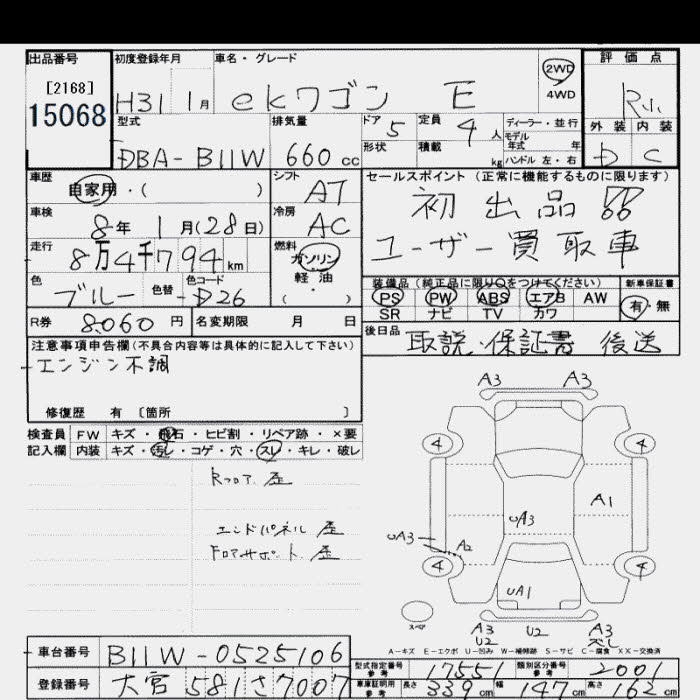 出品番号
[2168]
15068
初度登録年月
H31 1月
車名・グレード
ekワゴン E
2WD
4WD
評価点
外装 内装
D C
型式
DBA-B11W
排気量
660 cc
ドア 5
形状
定員 4 人
積載 kg
ディーラー・並行
モデル
年式 年
ハンドル 左・右
車歴
自家用・( )
車検
8年 1月(28日)
走行
8万4千794 km
色
ブルー
色替
色コード
D26
シフト
AT
冷房
AC
燃料
ガソリン
軽油
( )
セールスポイント (正常に機能するものに限ります)
初出品!!
ユーザー買取車
装備品(純正品に限り○をつけてください)
PS PW ABS エアB AW
SR ナビ TV カワ
新車保証書
有・無
R券 8060 円
名変期限 月 日
後日品 取説・保証書 後送
注意事項申告欄(不具合内容等は具体的に記入して下さい)
エンジン不調
修復歴 有 [箇所 ]
検査員 FW キズ・飛石・ヒビ割・リペア跡・×要
記入欄 内装 キズ・汚レ・コゲ・穴・スレ・キレ・破レ
Rフロア 歪
エンドパネル 歪
Fロアサポート 歪
A3 A3
4 4
A1
uA3
uA3
A2
4 4
uA1
スペア
A3
U2
U2
A3
A-キズ E-エクボ U-凹み W-補修跡 S-サビ C-腐食 XX-交換済
車台番号 B11W-0525106
登録番号 大宮 581さ7007
型式指定番号
参考
17551
類別区分番号
参考
2001
車庫証明用
参考
長さ 339 cm 幅 147 cm 高さ 163 cm